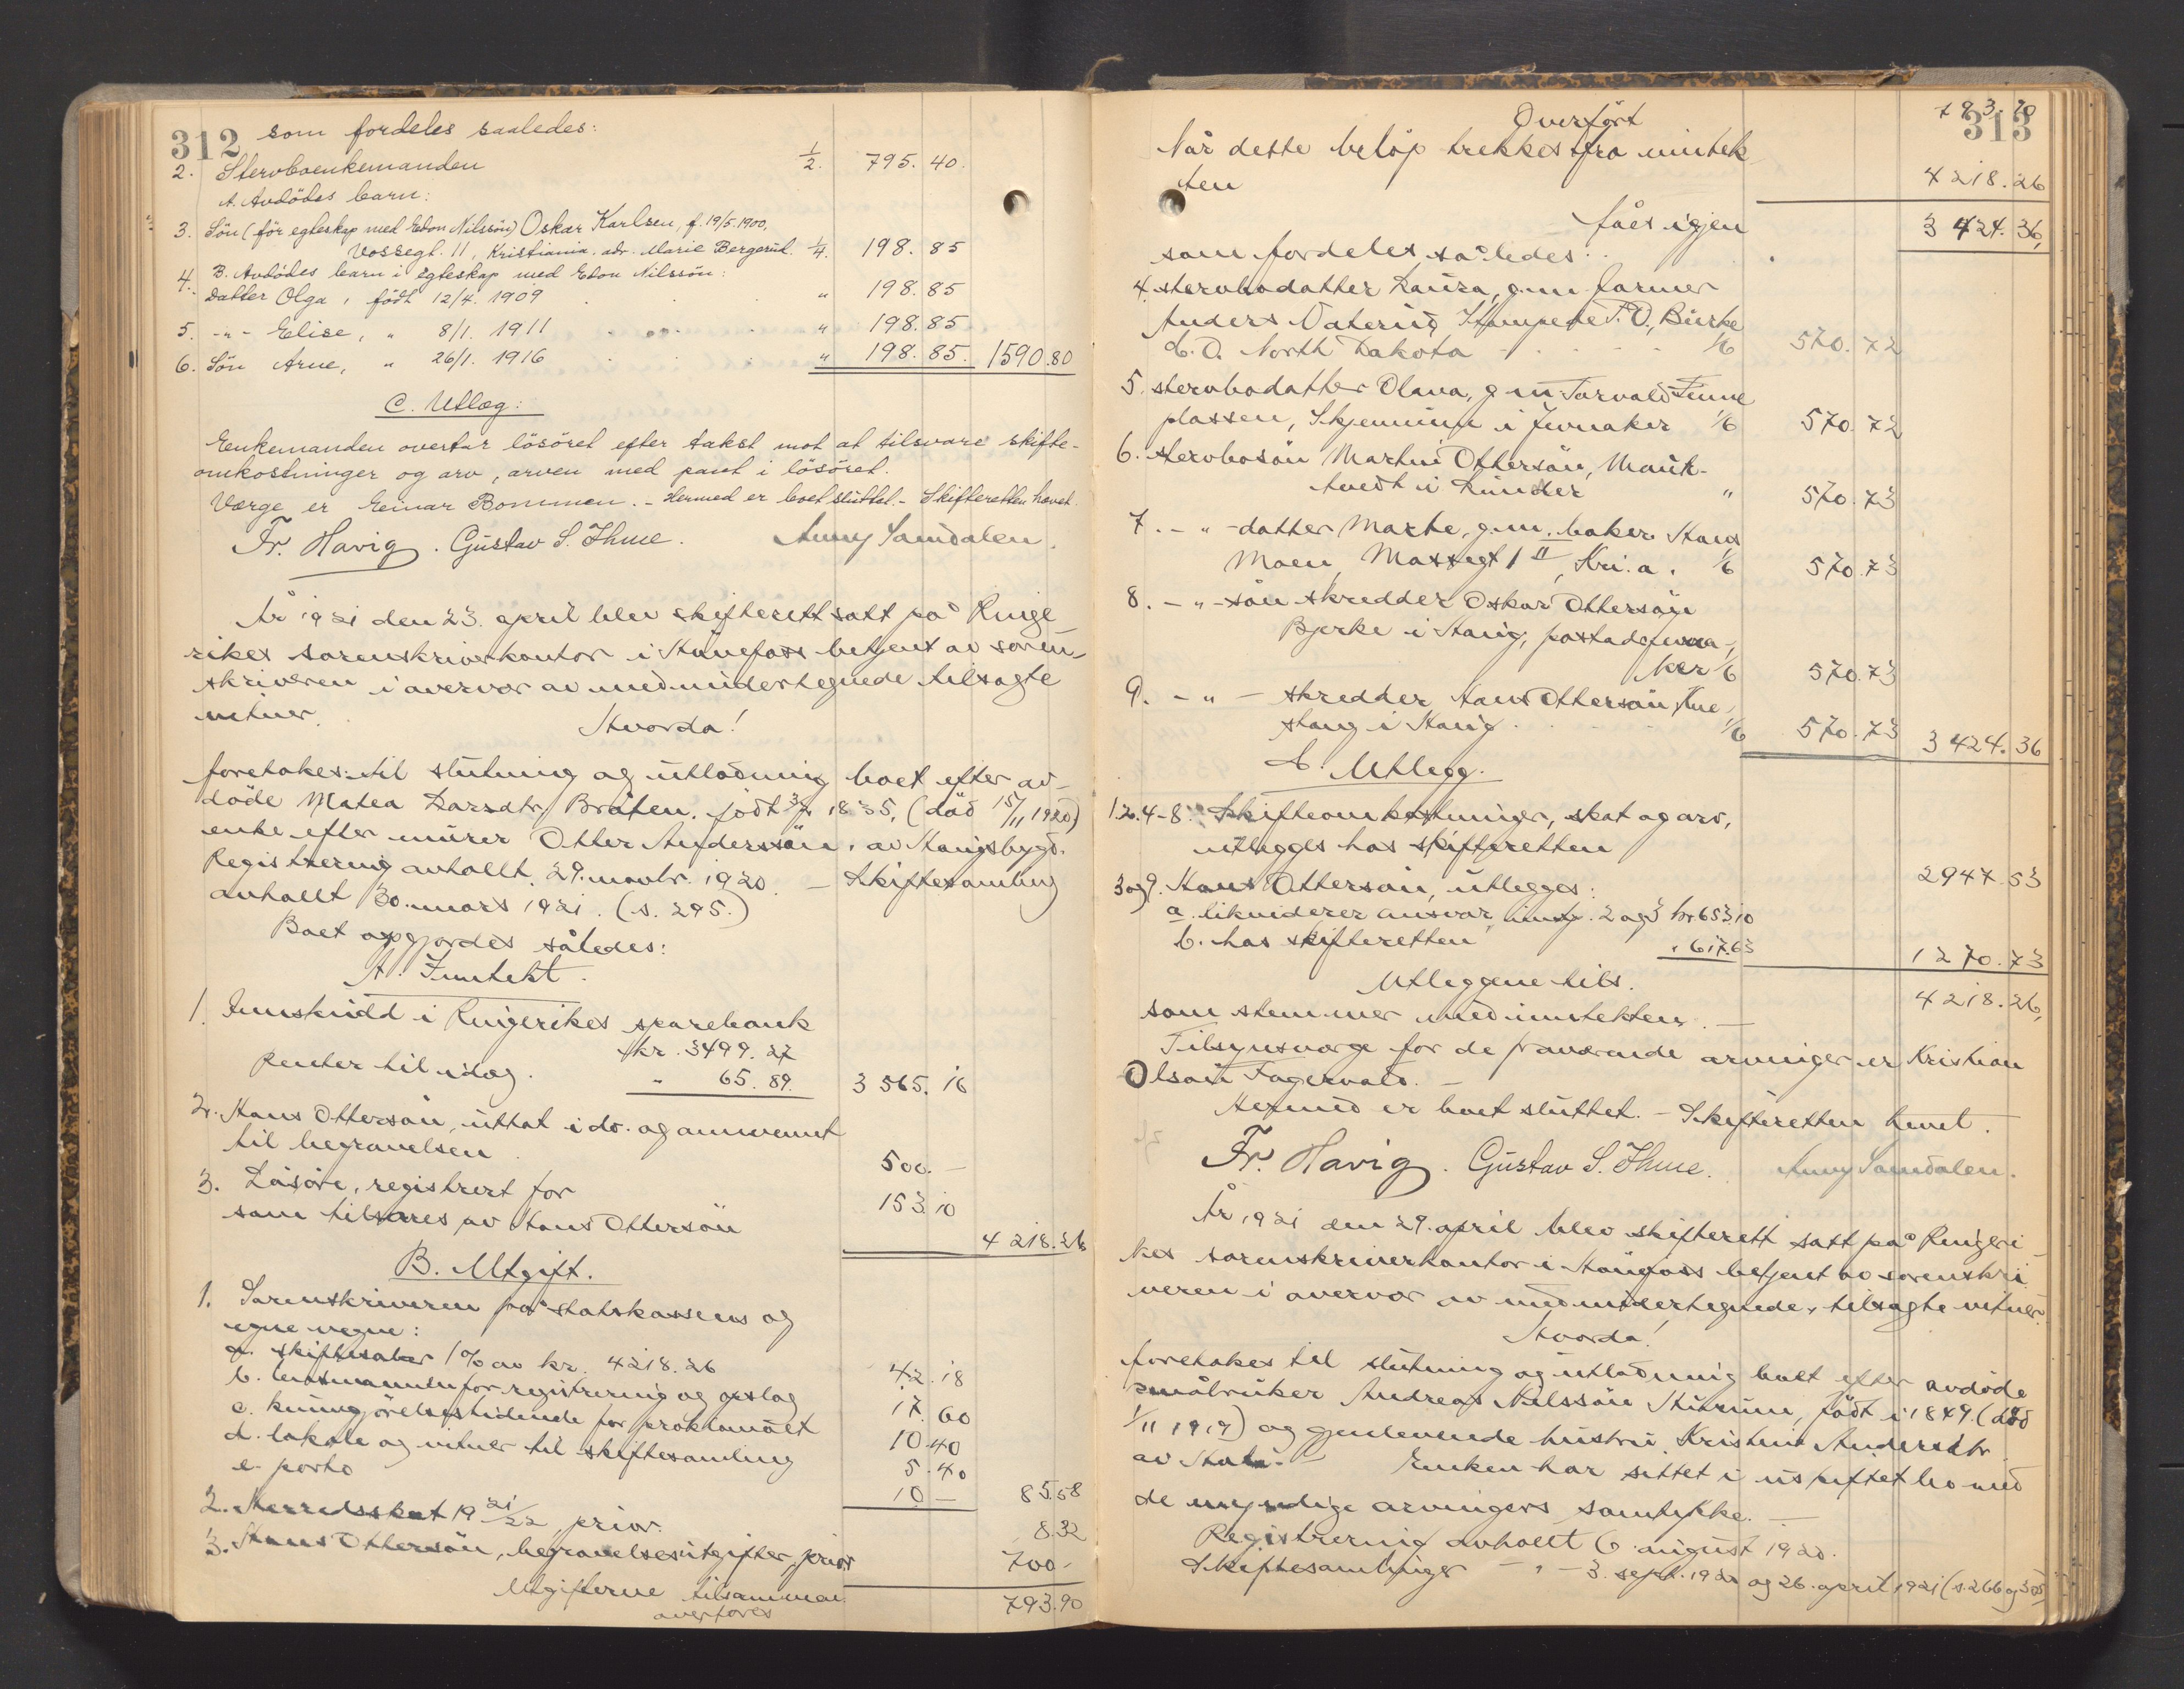 312 som fordeles saaledes:
2. Stervboenkemanden 1/2. 795.40.
A. Avdödes barn:
3. Sön (för egteskap med Edon Nilssön) Oskar Karlsen, f. 19/5. 1900,
Vossegt. 11, Kristiania. adr. Marie Bergerud. 1/4. 198.85
B. Avdödes barn i egteskap med Edon Nilssön:
4. Datter Olga, född 12/4. 1909 " 198.85
5. -"- Elise, " 8/1. 1911 " 198.85
6. Sön Arne, " 26/1. 1916 " 198.85. 1590.80
C. Utlæg:
Enkemanden overtar lösöret efter takst mot at tilsvare skifte-
omkostninger og arv, arven med pant i lösöret.
Værge er Einar Bommen. - Hermed er boet sluttet. - Skifteretten hævet.
Fr. Havig. Gustav S. Ihme. Anny Samdalen.
År 1921 den 23. april blev skifterett satt på Ringe-
rikes sorenskriverkontor i Hönefoss betjent av soren-
skriveren i overvær av medundertegnede tilsagte
vitner.
Hvorda!
foretokes til slutning og utlodning boet efter av-
döde Matea Larsdtr. Bråten, född 3/7 1835, (död 15/11 1920)
enke efter murer Otter Anderssön, av Haugsbygd.
Registrering avhollt 29. novbr. 1920. - Skiftesamling
avhollt 30. mars 1921. (s. 295.)
Boet opgjordes således:
A. Inntekt.
1. Innskudd i Ringerikes sparebank
kr. 3499.27
Renter til idag. " 65.89. 3565.16
2. Hans Ottersön, uttat i do. og annvennt
til begravelsen 500.-
3. Lösöre, registrert for 153.10
som tilsvares av Hans Ottersön
4218.26
B. Utgift.
1. Sorenskriveren på statskassens og
egne vegne:
a. skiftesalær 1% av kr. 4218.26 42.18
b. lensmannen for registrering og opslag 17.60
c. kunngjörelsestidende for proklamaet 10.40
d. lokale og vitner til skiftesamling 5.40
e. porto 10.- 85.58
2. Herredsskat 1921/22, prior. 8.32
3. Hans Ottersön, begravelsesutgifter, prior. 700.-
Utgifterne tilsammen 793.90
overföres
313
Overfört 793.90
Når dette belöp trekkes fra inntek-
ten 4218.26
fåes igjen 3424.36,
som fordeles således:
4. stervbodatter Laura, g.m. farmer
Anders Vaterud, Stampede P.O., Burke
C.O. North Dakota 1/6 570.72
5. stervbodatter Olava, g.m. Torvald Finne-
plassen, Skjenninn i Jevnaker 1/6 570.72
6. stervbosön Martin Ottersön, Mauk-
tvedt i Lunder " 570.73
7. -"-datter Marte, g.m. baker Hans
Moen, Mossegt 1 II, Kri.a. 1/6 570.73
8. -"-sön skredder Oskar Ottersön
Bjerke i Haug, postadr. Jevna-
ker 1/6 570.73
9. -"- skredder Hans Ottersön,
stang i Haug 1/6 570.73 3424.36
C. Utlegg.
1.2.4-8. Skifteomkostninger, skat og arv,
utlegges hos skifteretten 2947.53
3 og 9. Hans Ottersön, utlegges:
a. likviderer ansvar, inntp. 2 og 3 kr 653.10
b. hos skifteretten " 617.63 1270.73
Utleggene tils. 4218.26,
som stemmer med inntekten. -
Tilsynsverge for de fraværende arvinger er Kristian
Olsön Fagervold. -
Hermed er boet sluttet. - Skifteretten hevet.
Fr. Havig. Gustav S. Ihme. Anny Samdalen.
År 1921 den 29. april blev skifterett satt på Ringeri-
kes sorenskriverkontor i Hönefoss betjent av sorenskri-
veren i overvær av medundertegnede, tilsagte vitner.
Hvorda!
foretokes til slutning og utlodning boet efter avdöde
småbruker Andreas Nilssön, född i 1849 (död
1/11 1917) og gjenlevende hustru Kristine Andersdtr.
av Hole. - Enken har sittet i uskiftet bo med
de myndige arvingers samtykke. -
Registrering avhollt 6. august 1920.
Skiftesamlinger -"- 3. sept. 1920 og 26. april 1921 (s. 266 og 305)